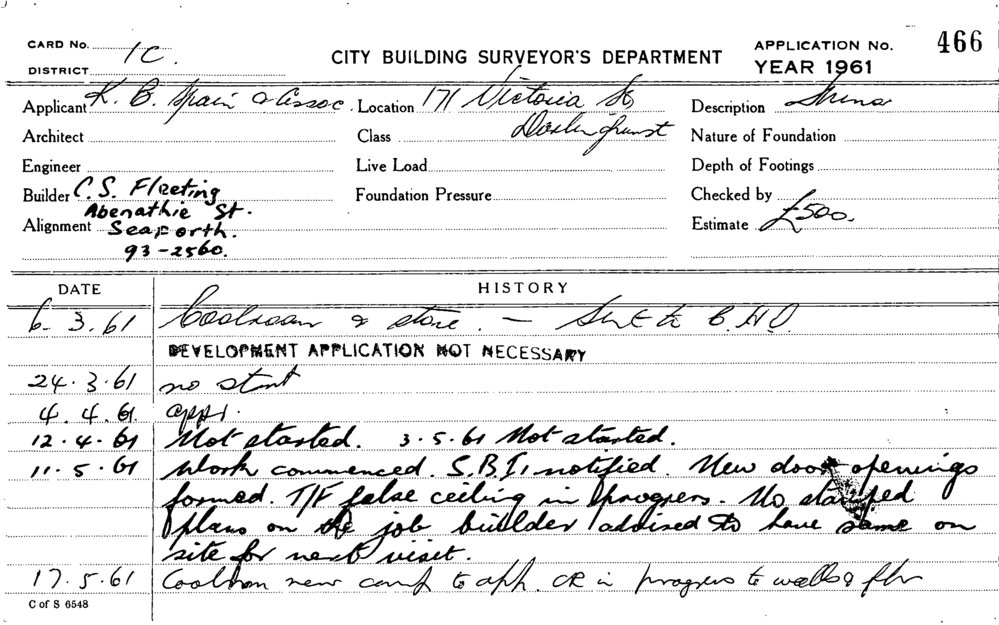 CARD No. 1C.
DISTRICT
CITY BUILDING SURVEYOR'S DEPARTMENT
APPLICATION No. 466
YEAR 1961
Applicant K. B. Spain & Assoc. Location 171 Victoria St Description
Architect Class Darlinghurst Nature of Foundation
Engineer Live Load Depth of Footings
Builder C.S. Fleeting Foundation Pressure Checked by
Abenathie St.
Alignment Seaforth. Estimate £500.
93-2560.
DATE HISTORY
6. 3. 61 Coolroom & store. - Sent to C.H.O.
DEVELOPMENT APPLICATION NOT NECESSARY
24. 3. 61 no start
4. 4. 61. appd.
12. 4. 61 Not started. 3. 5. 61 Not started.
11. 5. 61 Work commenced. S.B.I. notified. New door openings
formed. T/F false ceiling in progress. No stamped
plans on the job builder advised to have same on
site for next visit.
17. 5. 61 Coolroom near comp to app. CR in progress to walls & flr
C of S 6548